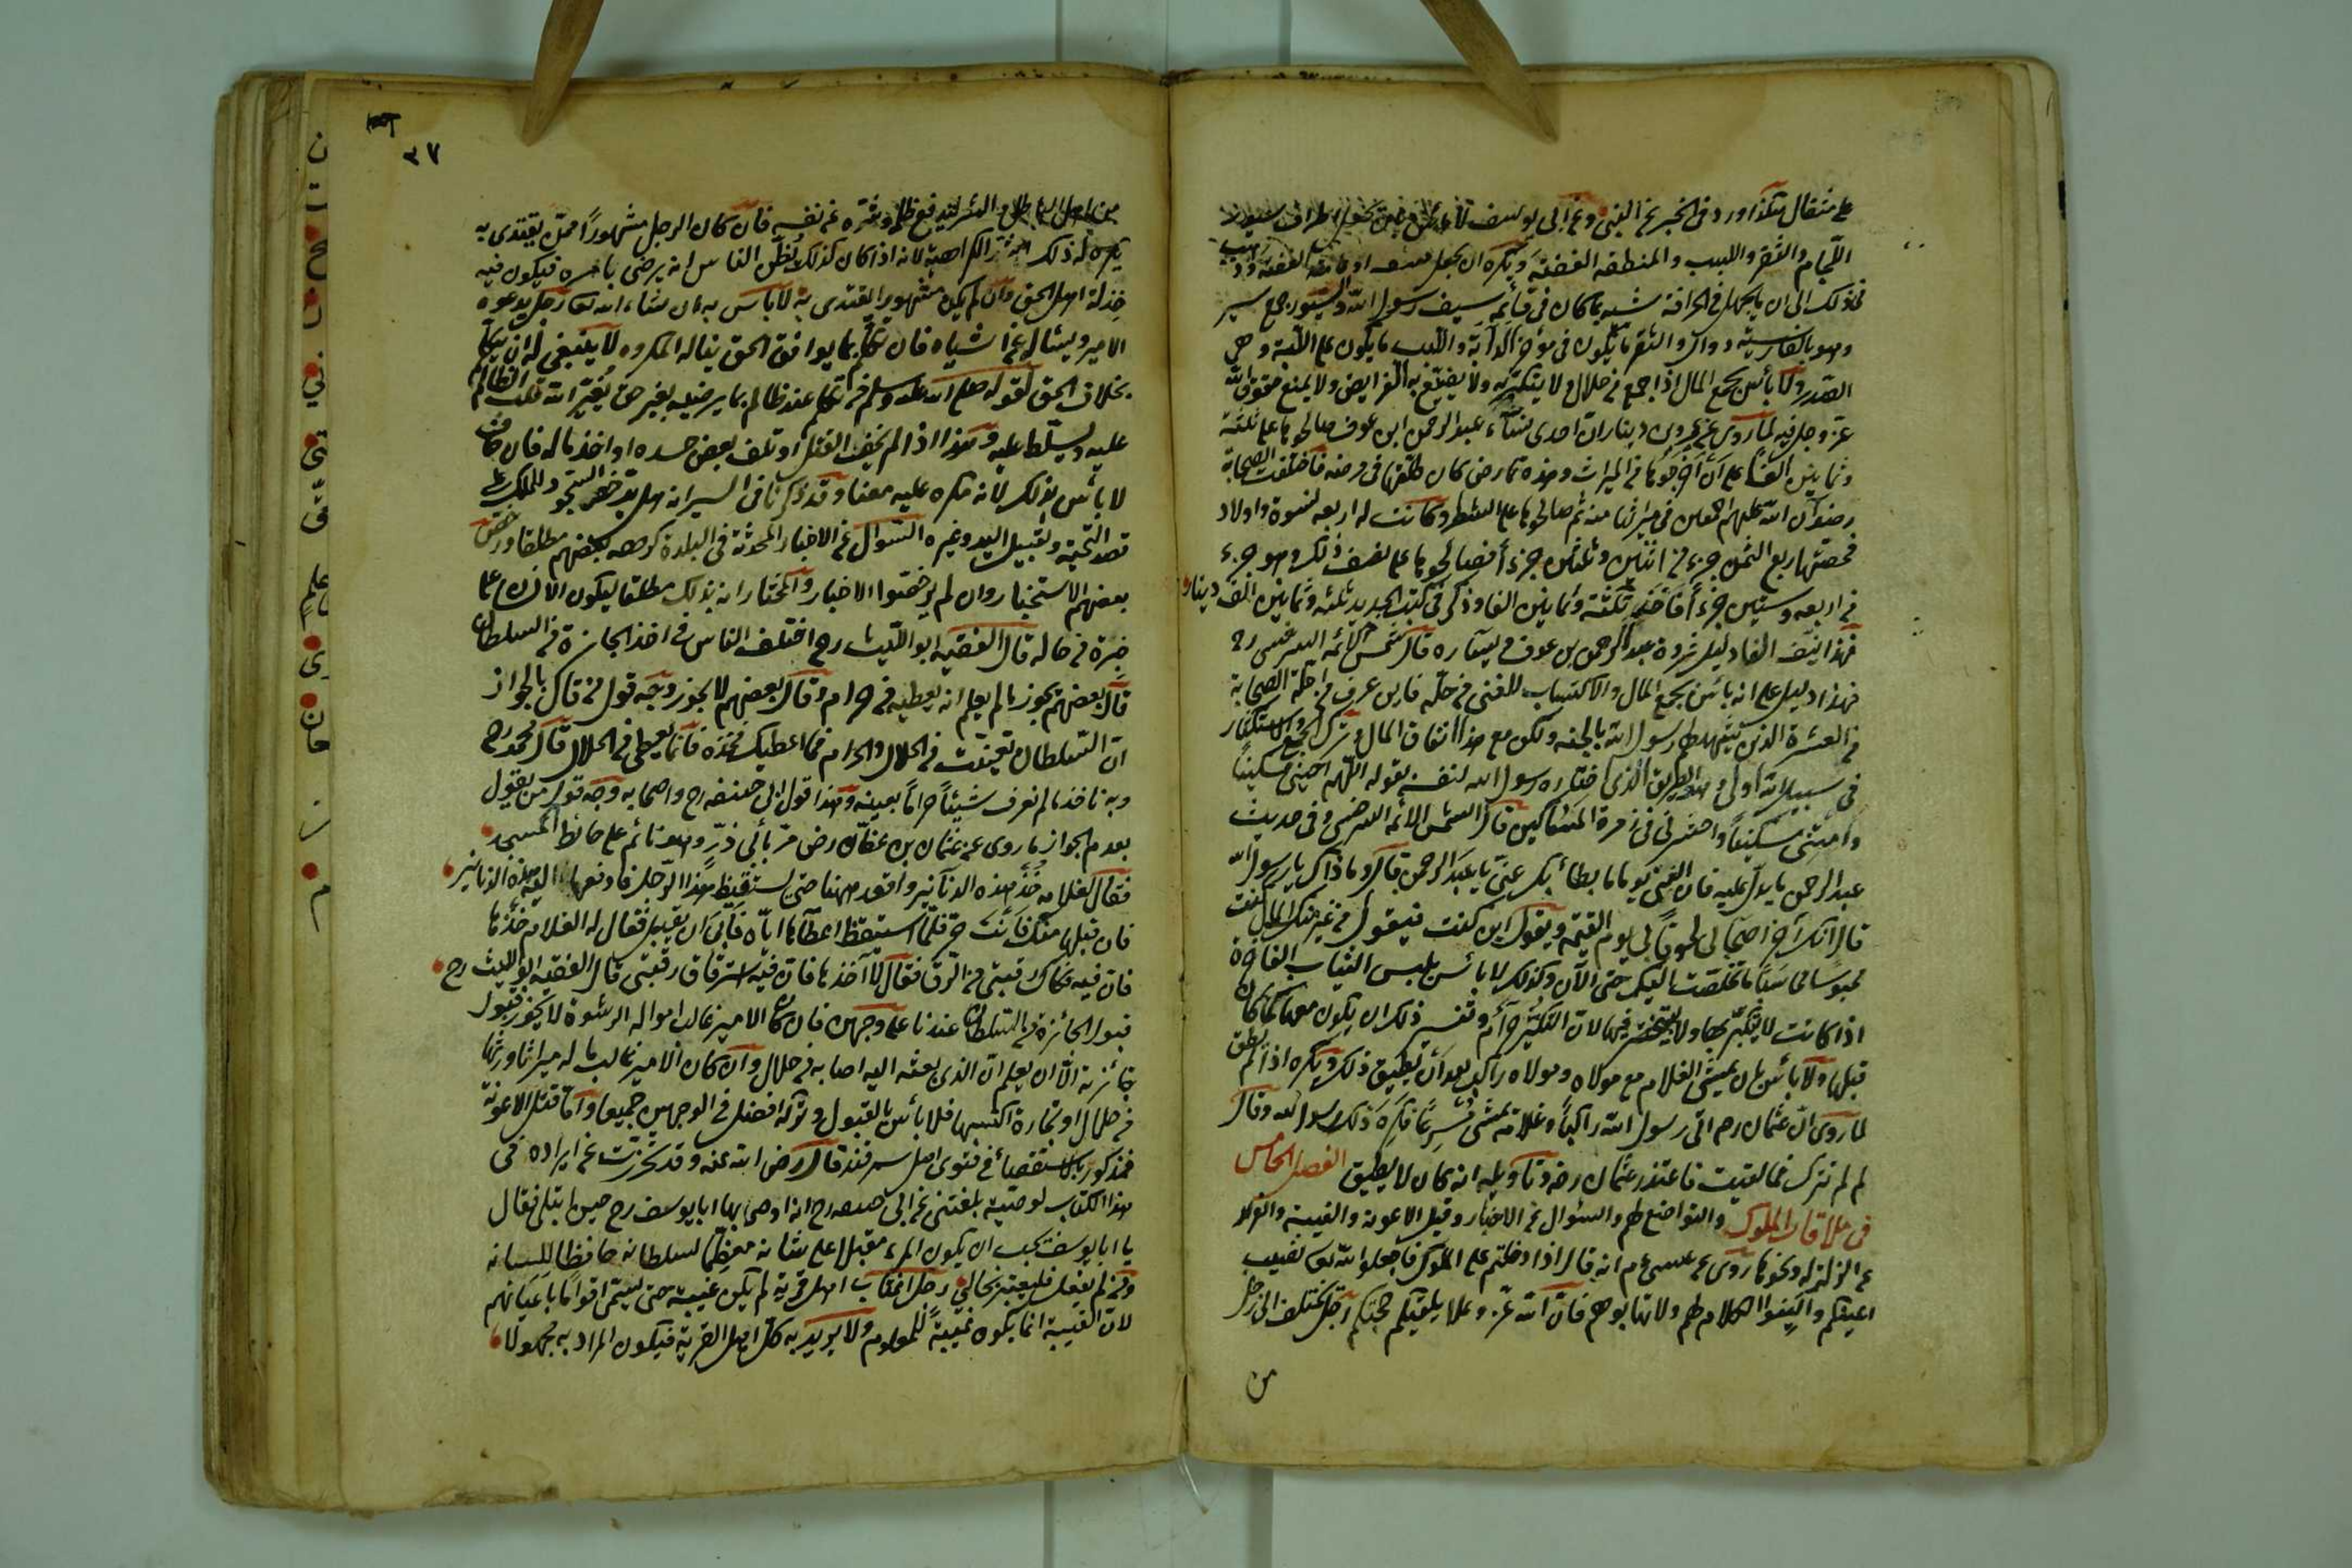 على مثقال هكذا ورد في الخبر عن النبي وعن أبي يوسف لا بأس
اللجام والثفر واللبب والمنطقة الفضة ويكره ان يجعل
في ذلك الى ان ما يجعل في الحرافة شبه ما كان في قائمة سيف رسول الله والسيور جمع سير
وهو بالفارسية دوال والثفر ما يكون في مؤخر الدابة واللبب ما يكون على اللبة وهي
الصدر ولا بأس بجمع المال اذا جمع من حلال ولا يتكبر به ولا يضيع به الفرايض ولا يمنع حقوق الله
عز وجل فيه لما روى عن عمرو بن دينار ان احدى نساء عبد الرحمن ابن عوف صالحوها على ثلثة
وثمانين الفا على ان اخرجوها من الميراث وهذه تماضر كان طلقها في مرضه فاختلفت الصحابة
رضوان الله عليهم اجمعين في ميراثها منه ثم صالحوها على الشطر وكانت له اربعة نسوة واولاد
فحصتها ربع الثمن جزء من اثنين وثلثين جزءا فصالحوها على نصف ذلك وهو جزء
من اربعة وستين جزءا فاخذت ثلثة وثمانين الفا وذكر في كتب الحديث ثلثة وثمانين الف دينار
فهذا نيف الفا دليل ثروة عبد الرحمن بن عوف في يساره قال شمس الائمة السرخسي رح
فهذا دليل على انه بأس بجمع المال والاكتساب للغنى من حله فابن عوف من اجلة الصحابة
من العشرة الذين يشهد لهم رسول الله بالجنة ولكن مع هذا انفاق المال وترك الجمع والاستكثار
في سبيل الله اولى وهو الطريق الذي اختاره رسول الله لنفسه بقوله اللهم احيني مسكينا
وامتني مسكينا واحشرني في زمرة المساكين قال الشمس الائمة السرخسي وفي حديث
عبد الرحمن ما يدل عليه فان النبي يوما ما بطأ بك عني يا عبد الرحمن قال وما ذاك يا رسول الله
قال انك آخر اصحابي لحوقا بي يوم القيمة ويقول اين كنت فيقول من غير منك المال كنت
محبوسا ما تخلصت اليك حتى الآن وكذلك لا بأس بلبس الثياب الفاخرة
اذا كانت لا يتكبر بها ولا يتبختر فيها لان التكبر حرام وتفسير ذلك ان يكون معها كما كان
قبلها ولا بأس بان يمشي الغلام مع مولاه ومولاه راكب بعد ان يطيق ذلك ويكره اذا لم يطق
لما روى ان عثمان رح اتى رسول الله راكبا وغلامه يمشي فكره ذلك رسول الله وقال
لم لم تترك فاعتذر عثمان رضه وتأويله انه كان لا يطيق الفصل الخامس
في ملاقات الملوك والتواضع لهم والسؤال عن الاخبار وقتل الاعونة والغيبة والقرار
عن الزلزلة ونحوها روى عن عيسى عم انه قال اذا دخلتم على الملوك فاجعلوا الله نصب
اعينكم والينوا الكلام لهم ولا تهابوهم فان الله عز وعلا يلقنكم حجتكم رجل يختلف الى رجل
من
٣٧
من اهل الباطل والشر ليدفع ظلمه وشره عن نفسه فان كان الرجل مشهورا ممن يقتدى به
يكره له ذلك اشد الكراهية لانه اذا كان كذلك يظن الناس انه يرضى بامره فيكون فيه
مذلة اهل الحق وان لم يكن مشهورا يقتدى به لا بأس به ان شاء الله تعالى رجل يدعوه
الامير ويسئاله عن اشياء فان تكلم بما يوافق الحق يناله المكروه لا ينبغي له ان يتكلم
بخلاف الحق لقوله صلى الله عليه وسلم من تكلم عند ظالم بما يرضيه بغير حق يغير الله قلب الظالم
عليه ويسلط عليه وهذا اذا لم يخف القتل او تلف بعض جسده او اخذ ماله فان خاف
لا بأس بذلك لانه مكره عليه معنا وقد ذكرنا في السير انه هل يرخص السجود للملك على
قصد التحية وتقبيل اليد وغيره السؤال عن الاخبار المحدثة في البلدة كرهه بعضهم مطلقا ورخص
بعضهم الاستخبار وان لم يرخصوا الاخبار والمختار انه بذلك مطلقا ليكون الانسان على
خبرة من حاله قال الفقيه ابو الليث رح اختلف الناس في اخذ الجائزة من السلطان
قال بعضهم يجوز ما لم يعلم انه يعطيه من حرام وقال بعضهم لا يجوز وجه قول من قال بالجواز
ان السلطان في الحلال والحرام فما اعطيك فخذه فانما يعطى من الحلال قال محمد رح
وبه ناخذ ما لم نعرف شيئا حراما بعينه وهذا قول ابي حنيفه رح واصحابه وجه قول من يقول
بعدم الجواز ما روى عن عثمان بن عفان رض مر بأبي ذر وهو نائم على حائط المسجد
فقال لغلامه خذ هذه الدنانير واقعد ههنا حتى يستيقظ هذا الرجل فادفع اليه هذه الدنانير
فان قبلها منك فانت حر فلما استيقظ اعطاها اياه فأبى ان يقبل فقال له الغلام خذها
فان فيه فكاك رقبتي من الرق فقال لا آخذها فان فيه استرقاق رقبتي قال الفقيه ابو الليث رح
قبول الجائزة من السلطان عندنا على وجهين فان كان الامير غالب امواله الرشوة لا يجوز قبول
جائزته الا ان يعلم ان الذي بعثه اليه اصابه من حلال وان كان الامير غالب ماله ميراثا ورثها
من حلال او تجارة اكتسبها فلا بأس بالقبول وتركه افضل في الوجهين جميعا واما قتل الاعونة
فمذكور بالاستقصاء في فتوى اهل سمرقند قال رضى الله عنه وقد تحرزت عن ايراده في
هذا الكتاب لوصية بلغتني عن ابي حنيفه رح انه اوصى بها ابا يوسف رح حين ابتلى فقال
يا ابا يوسف يجب ان يكون المرء مقبلا على شانه معظما لسلطانه حافظا للسانه
ومن لم يفعل فليعتبر بحالي رجل اغتاب اهل قرية لم يكن غيبة حتى يسمى اقواما باعيانهم
لان الغيبة انما يكون غيبة للمعلوم ولا يريد به كل اهل القرية فيكون المراد به مجهولا